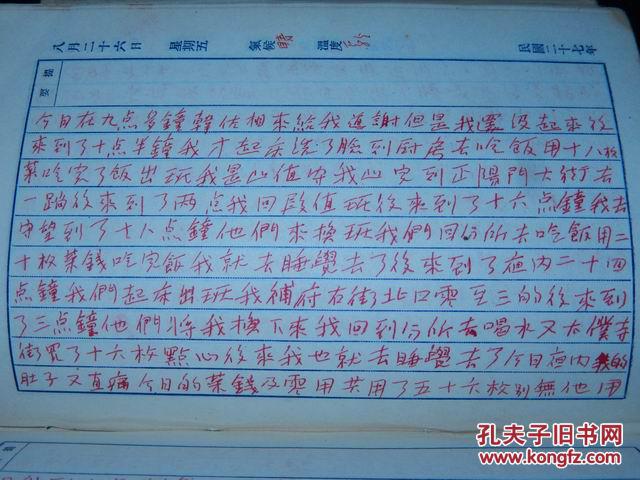 民國二十七年 溫度 氣候晴 星期五 八月二十六日
提要
今日在九点多鐘韓佐相來給我道謝但是我還没起來後
來到了十点半鐘我才起床洗了臉到厨房去吃飯用十八枚
菜吃完了飯出班我是山值守我山完到正陽門大街去
一趟後來到了两点我回段值班後來到了十六点鐘我去
守望到了十八点鐘他們來换班我們回分所去吃飯用二
十枚菜錢吃完飯我就去睡覺去了後來到了夜内二十四
点鐘我們起床出班我補府右街北口零至三的後來到
了三点鐘他們將我换下來我回到分所去喝水又大僕寺
街買了十六枚點心後來我也就去睡覺去了今日夜内我的
肚子又直痛今日的菜錢及零用共用了五十六枚别無他用
孔夫子旧书网
www.kongfz.com